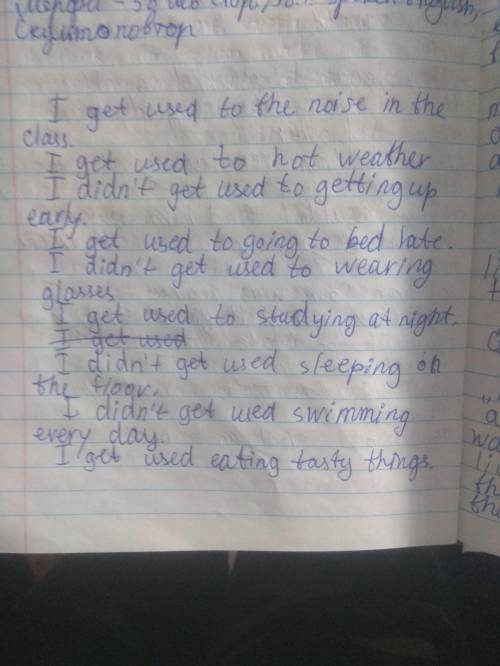 I get used to the noise in the
class.
I get used to hot weather
I didn't get used to getting up
early.
I get used to going to bed late.
I didn't get used to wearing
glasses
I get used to studying at night.
I get used
I didn't get used sleeping on
the floor.
I didn't get used swimming
every day.
I get used eating tasty things.